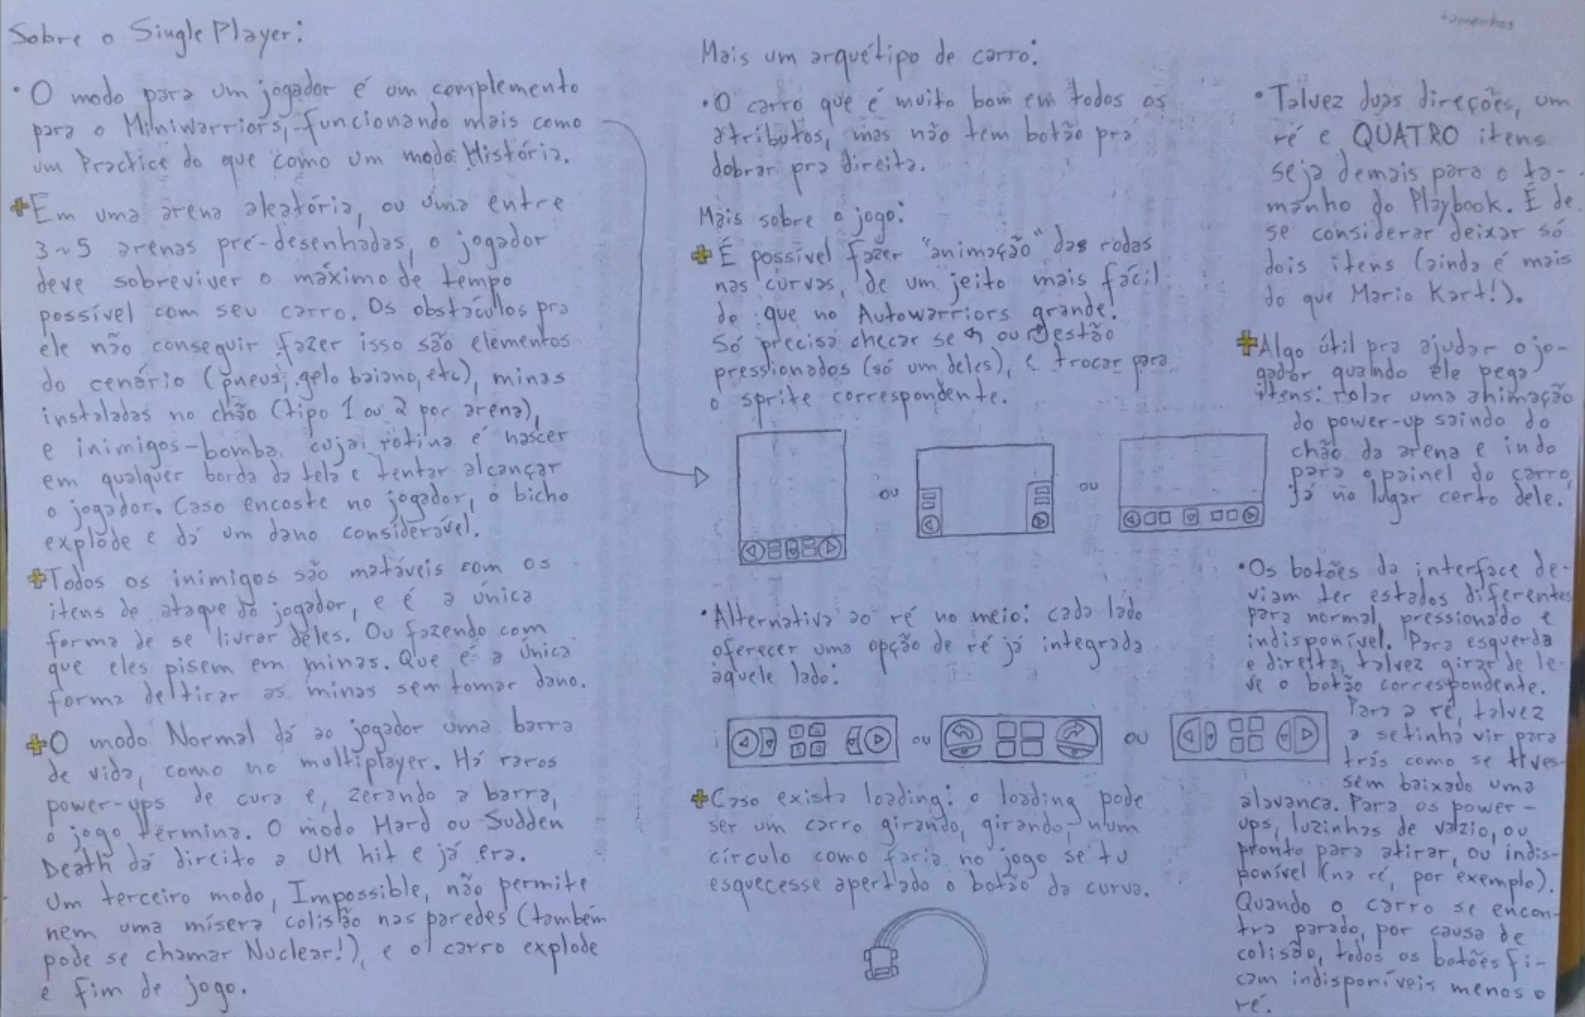 Sobre o Single Player:
• O modo para um jogador é um complemento
para o Miniwarriors, funcionando mais como
um Practice do que como um modo História.
+Em uma arena aleatória, ou uma entre
3~5 arenas pré-desenhadas, o jogador
deve sobreviver o máximo de tempo
possível com seu carro. Os obstáculos pra
ele não conseguir fazer isso são elementos
do cenário (pneus, gelo baiano, etc), minas
instaladas no chão (tipo 1 ou 2 por arena),
e inimigos-bomba, cuja rotina é nascer
em qualquer borda da tela e tentar alcançar
o jogador. Caso encoste no jogador, o bicho
explode e dá um dano considerável.
+Todos os inimigos são matáveis com os
itens de ataque do jogador, e é a única
forma de se livrar deles. Ou fazendo com
que eles pisem em minas. Que é a única
forma de tirar as minas sem tomar dano.
+O modo Normal dá ao jogador uma barra
de vida, como no multiplayer. Há raros
power-ups de cura e, zerando a barra,
o jogo termina. O modo Hard ou Sudden
Death dá direito a UM hit e já era.
Um terceiro modo, Impossible, não permite
nem uma mísera colisão nas paredes (também
pode se chamar Nuclear!), e o carro explode
e fim de jogo.
Mais um arquétipo de carro:
• O carro que é muito bom em todos os
atributos, mas não tem botão pra
dobrar pra direita.
Mais sobre o jogo:
+É possível fazer "animação" das rodas
nas curvas, de um jeito mais fácil
do que no Autowarriors grande.
Só precisa checar se ↰ ou ↱ estão
pressionados (só um deles), e trocar para
o sprite correspondente.
ou
ou
• Alternativa ao ré no meio: cada lado
oferecer uma opção de ré já integrada
àquele lado:
ou
ou
+Caso exista loading: o loading pode
ser um carro girando, girando, num
círculo como faria no jogo se tu
esquecesse apertado o botão da curva.
tamanhos
• Talvez duas direções, um
ré e QUATRO itens
seja demais para o ta-
manho do Playbook. É de
se considerar deixar só
dois itens (ainda é mais
do que Mario Kart!).
+Algo útil pra ajudar o jo-
gador quando ele pega
itens: rolar uma animação
do power-up saindo do
chão da arena e indo
para o painel do carro,
já no lugar certo dele.
• Os botões da interface de-
viam ter estados diferentes
para normal, pressionado e
indisponível. Para esquerda
e direita, talvez girar de le-
ve o botão correspondente.
Para a ré, talvez
a setinha vir para
trás como se tives-
sem baixado uma
alavanca. Para os power-
ups, luzinhas de vazio, ou
pronto para atirar, ou indis-
ponível (na ré, por exemplo).
Quando o carro se encon-
tra parado, por causa de
colisão, todos os botões fi-
cam indisponíveis menos o
ré.